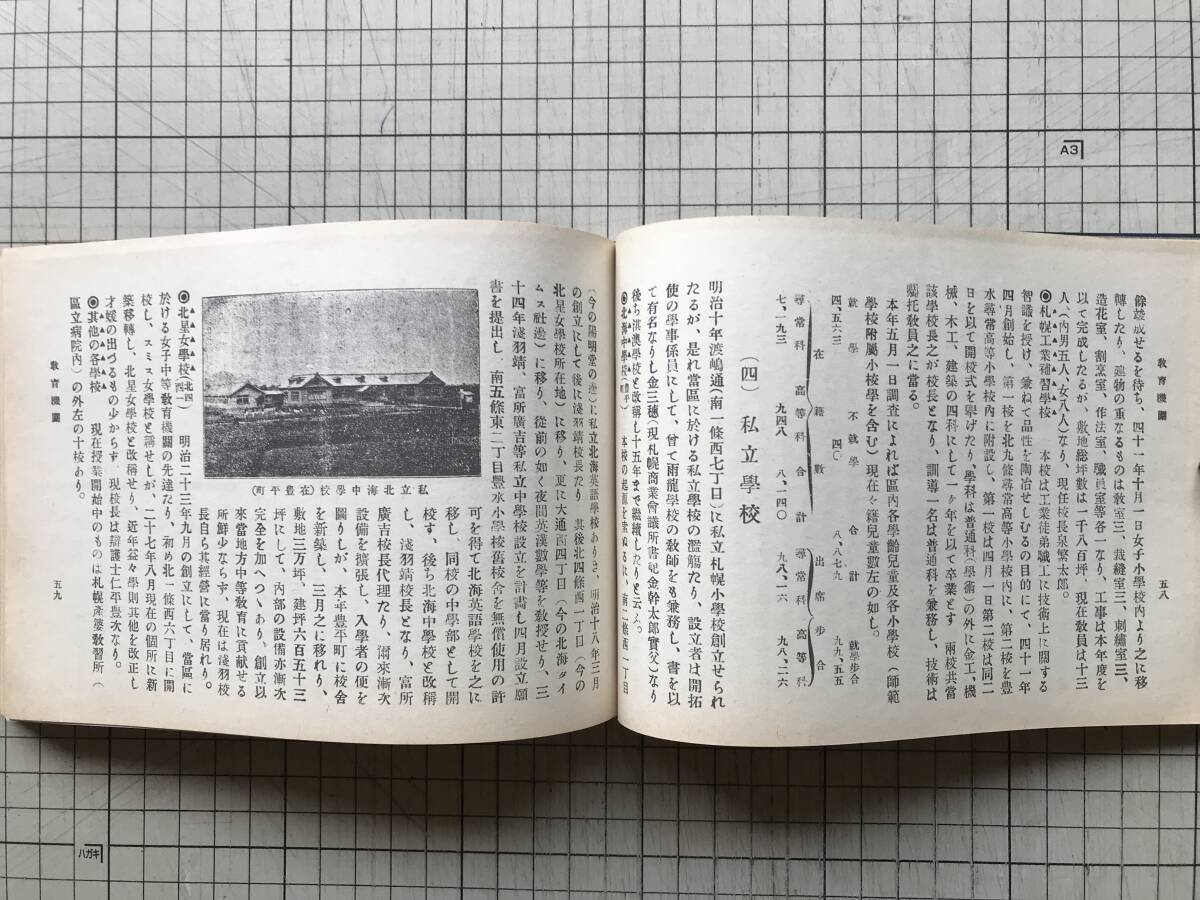 教育機關
五八
餘竣成せるを待ち、四十一年十月一日女子小學校內より之に移
轉したり、建物の重なるものは敎室三、裁縫室三、刺繡室三、
造花室、割烹室、作法室、職員室等各一なり、工事は本年度を
以て完成したるが、敷地總坪數は一千八百坪、現在敎員は十三
人(內男五人、女八人)なり、現任校長泉繁太郎。
◉札幌工業補習學校 本校は工業徒弟職工に技術上に關する
智識を授け、兼ねて品性を陶冶せしむるの目的にて、四十一年
四月創始し、第一校を北九條尋常高等小學校內に、第二校を豊
水尋常高等小學校內に附設し、第一校は四月一日第二校は同二
日を以て開校式を擧げたり、學科は普通科(學術)の外に金工、機
械、木工、建築の四科にして一ヶ年を以て卒業とす 兩校共當
該學校長之が校長となり、訓導一名は普通科を兼務し、技術は
囑托敎員之に當る。
本年五月一日調査によれば區內各學齡兒童及各小學校(師範
學校附屬小校を含む)現在々籍兒童數左の如し。
就學 不就學 合計 就學步合
四、五六三 四〇 八、八七九 九九、五五
在籍數 出席步合
尋常科 高等科 合計 尋常科 高等科
七、一九三 九四八 八、一四〇 九八、一六 九八、二六
(四) 私立學校
明治十年渡嶋通(南一條西七丁目)に私立札幌小學校創立せられ
たるが、是れ當區に於ける私立學校の濫觴たり、設立者は開拓
使の學事係員にして、曾て雨龍學校の敎師をも兼務し、書を以
て有名なりし金三穗(現札幌商業會議所書記金幹太郎實父)なり
後ち淇澳學校と改稱し十五年まで繼續したりと云ふ。
◉北海中學校
(今の陽明堂の邊)に私立北海英語學校ありき、明治十八年三月
の創立にして後に淺羽靖校長たり 其後北四條西一丁目(今の
北星女學校所在地)に移り、更に大通西四丁目(今の北海タイ
ムス社邊)に移り、從前の如く夜間英漢數學等を敎授せり、三
十四年淺羽靖、富所廣吉等私立中學校設立を計畫し四月設立願
書を提出し、南五條東二丁目豐水小學校舊校舍を無償使用の許
可を得て北海英語學校を之に
移し、同校の中學部として開
校す、後ち北海中學校と改稱
し、淺羽靖校長となり、富所
廣吉校長代理たり、爾來漸次
設備を擴張し、入學者の便を
圖りしが、本年豊平町に校舍
を新築し、三月之に移れり、
敷地三万坪、建坪六百五十三
坪にして、內部の設備亦漸次
完全を加へつゝあり、創立以
來當地方中等敎育に貢献せる
所鮮少ならず、現在は淺羽校
長自ら其經營に當り居れり。
私立北海中學校(在豊平町)
◉北星女學校(北四西一) 明治二十三年九月の創立にして、當區に
於ける女子中等敎育機關の先達たり、初め北一條西六丁目に開
校し、スミス女學校と稱せしが、二十七年八月現在の個所に新
築移轉し、北星女學校と改稱せり、近年益々學則其他を改正し
才媛の出づるもの少からず、現校長は辯護士仁平豊次なり。
◉其他の各學校 現在授業開始中のものは札幌產婆敎習所(
區立病院內)の外左の十校あり。
敎育機關
五九
A3
ハガキ